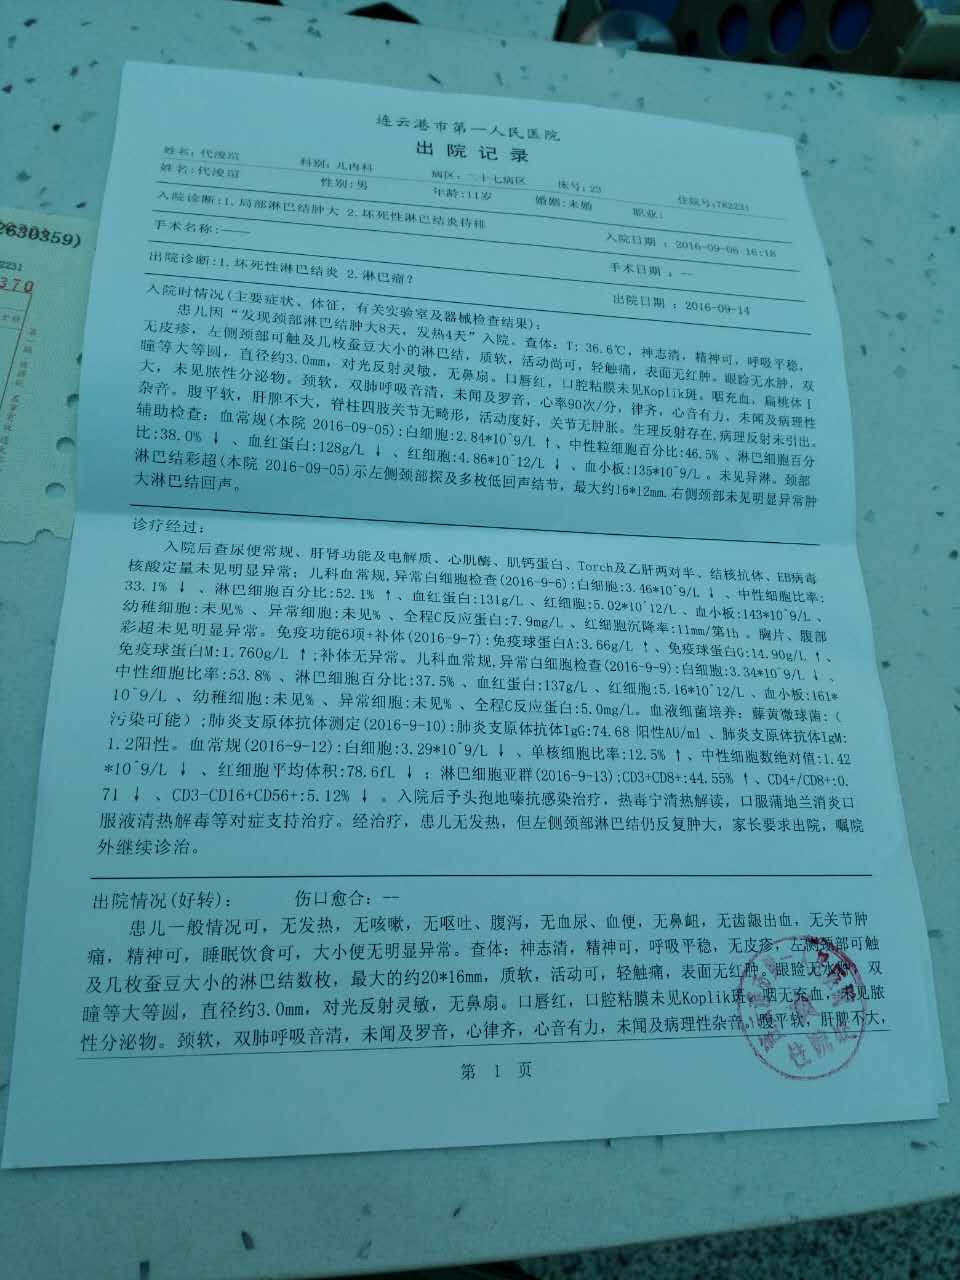 连云港市第一人民医院
出院记录
姓名:代浚瑄 科别:儿内科 病区:二十七病区 床号:23 住院号:782231
姓名:代浚瑄 性别:男 年龄:11岁 婚姻:未婚 职业:
入院诊断:1.局部淋巴结肿大 2.坏死性淋巴结炎待排 入院日期:2016-09-06 16:18
手术名称:—— 手术日期:--
出院诊断:1.坏死性淋巴结炎 2.淋巴瘤? 出院日期:2016-09-14
入院时情况(主要症状、体征,有关实验室及器械检查结果):
患儿因“发现颈部淋巴结肿大8天,发热4天”入院。查体:T:36.6℃,神志清,精神可,呼吸平稳,
无皮疹,左侧颈部可触及几枚蚕豆大小的淋巴结,质软,活动尚可,轻触痛,表面无红肿。眼睑无水肿,双
瞳等大等圆,直径约3.0mm,对光反射灵敏,无鼻扇。口唇红,口腔粘膜未见Koplik斑。咽充血,扁桃体I
大,未见脓性分泌物。颈软,双肺呼吸音清,未闻及罗音,心率90次/分,律齐,心音有力,未闻及病理性
杂音。腹平软,肝脾不大,脊柱四肢关节无畸形,活动度好,关节无肿胀。生理反射存在,病理反射未引出。
辅助检查:血常规(本院 2016-09-05):白细胞:2.84*10^9/L ↑、中性粒细胞百分比:46.5% 、淋巴细胞百分
比:38.0% ↓、血红蛋白:128g/L ↓、红细胞:4.86*10^12/L ↓、血小板:135*10^9/L 。未见异淋。颈部
淋巴结彩超(本院 2016-09-05)示左侧颈部探及多枚低回声结节,最大约16*12mm.右侧颈部未见明显异常肿
大淋巴结回声。
诊疗经过:
入院后查尿便常规、肝肾功能及电解质、心肌酶、肌钙蛋白、Torch及乙肝两对半、结核抗体、EB病毒
核酸定量未见明显异常;儿科血常规,异常白细胞检查(2016-9-6):白细胞:3.46*10^9/L ↓、中性细胞比率:
33.1% ↓、淋巴细胞百分比:52.1% ↑、血红蛋白:131g/L 、红细胞:5.02*10^12/L 、血小板:143*10^9/L 、
幼稚细胞:未见% 、异常细胞:未见% 、全程C反应蛋白:7.9mg/L 、红细胞沉降率:11mm/第1h 。胸片、腹部
彩超未见明显异常。免疫功能6项+补体(2016-9-7):免疫球蛋白A:3.66g/L ↑、免疫球蛋白G:14.90g/L ↑、
免疫球蛋白M:1.760g/L ↑;补体无异常。儿科血常规,异常白细胞检查(2016-9-9):白细胞:3.34*10^9/L ↓、
中性细胞比率:53.8% 、淋巴细胞百分比:37.5% 、血红蛋白:137g/L 、红细胞:5.16*10^12/L 、血小板:161*
10^9/L 、幼稚细胞:未见% 、异常细胞:未见% 、全程C反应蛋白:5.0mg/L。血液细菌培养:藤黄微球菌:(
污染可能);肺炎支原体抗体测定(2016-9-10):肺炎支原体抗体IgG:74.68 阳性AU/ml 、肺炎支原体抗体IgM:
1.2阳性。血常规(2016-9-12):白细胞:3.29*10^9/L ↓、单核细胞比率:12.5% ↑、中性细胞数绝对值:1.42
*10^9/L ↓、红细胞平均体积:78.6fL ↓;淋巴细胞亚群(2016-9-13):CD3+CD8+:44.55% ↑、CD4+/CD8+:0.
71 ↓、CD3-CD16+CD56+:5.12% ↓。入院后予头孢地嗪抗感染治疗,热毒宁清热解读,口服蒲地兰消炎口
服液清热解毒等对症支持治疗。经治疗,患儿无发热,但左侧颈部淋巴结仍反复肿大,家长要求出院,嘱院
外继续诊治。
出院情况(好转): 伤口愈合:--
患儿一般情况可,无发热,无咳嗽,无呕吐、腹泻,无血尿、血便,无鼻衄,无齿龈出血,无关节肿
痛,精神可,睡眠饮食可,大小便无明显异常。查体:神志清,精神可,呼吸平稳,无皮疹,左侧颈部可触
及几枚蚕豆大小的淋巴结数枚,最大的约20*16mm,质软,活动可,轻触痛,表面无红肿。眼睑无水肿,双
瞳等大等圆,直径约3.0mm,对光反射灵敏,无鼻扇。口唇红,口腔粘膜未见Koplik斑。咽无充血,未见脓
性分泌物。颈软,双肺呼吸音清,未闻及罗音,心律齐,心音有力,未闻及病理性杂音。腹平软,肝脾不大,
第 1 页
2630359)
2231
370